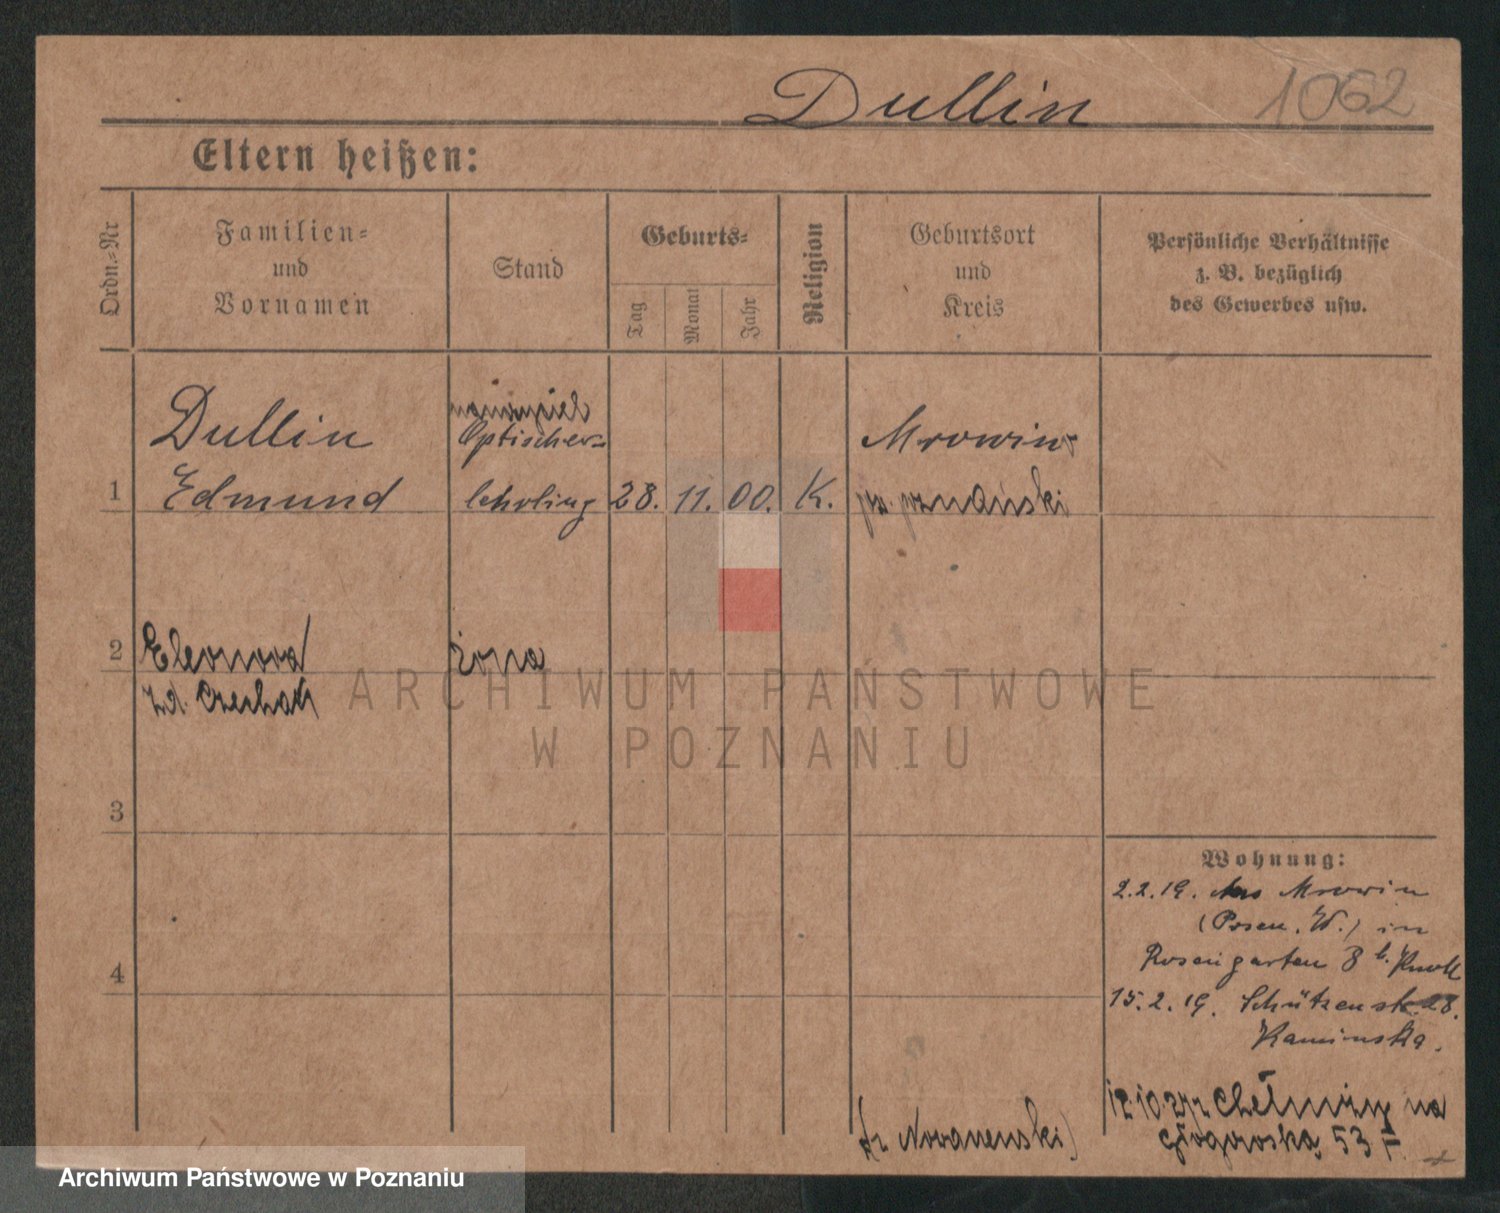 Dullin 1062
Eltern heißen:
Ordn.-Nr
Familien-
und
Vornamen
Stand
Geburts-
Tag
Monat
Jahr
Religion
Geburtsort
und
Kreis
Persönliche Verhältnisse
z. B. bezüglich
des Gewerbes usw.
nauczyciel
Dullin Optischer- Mrowino
1 Edmund lehrling 28. 11. 00. K. pw. poznański
2 Eleonora żona
zd. Czechak
ARCHIWUM PAŃSTWOWE
W POZNANIU
3
4
Wohnung:
2.2.19. Aus Mrowin
(Posen. W.) in
Rosengarten 8 b.
15.2.19. Schützenstr. 28.
Kaminska.
12.10.27 z Chełmży na
Głogowską 53
Archiwum Państwowe w Poznaniu